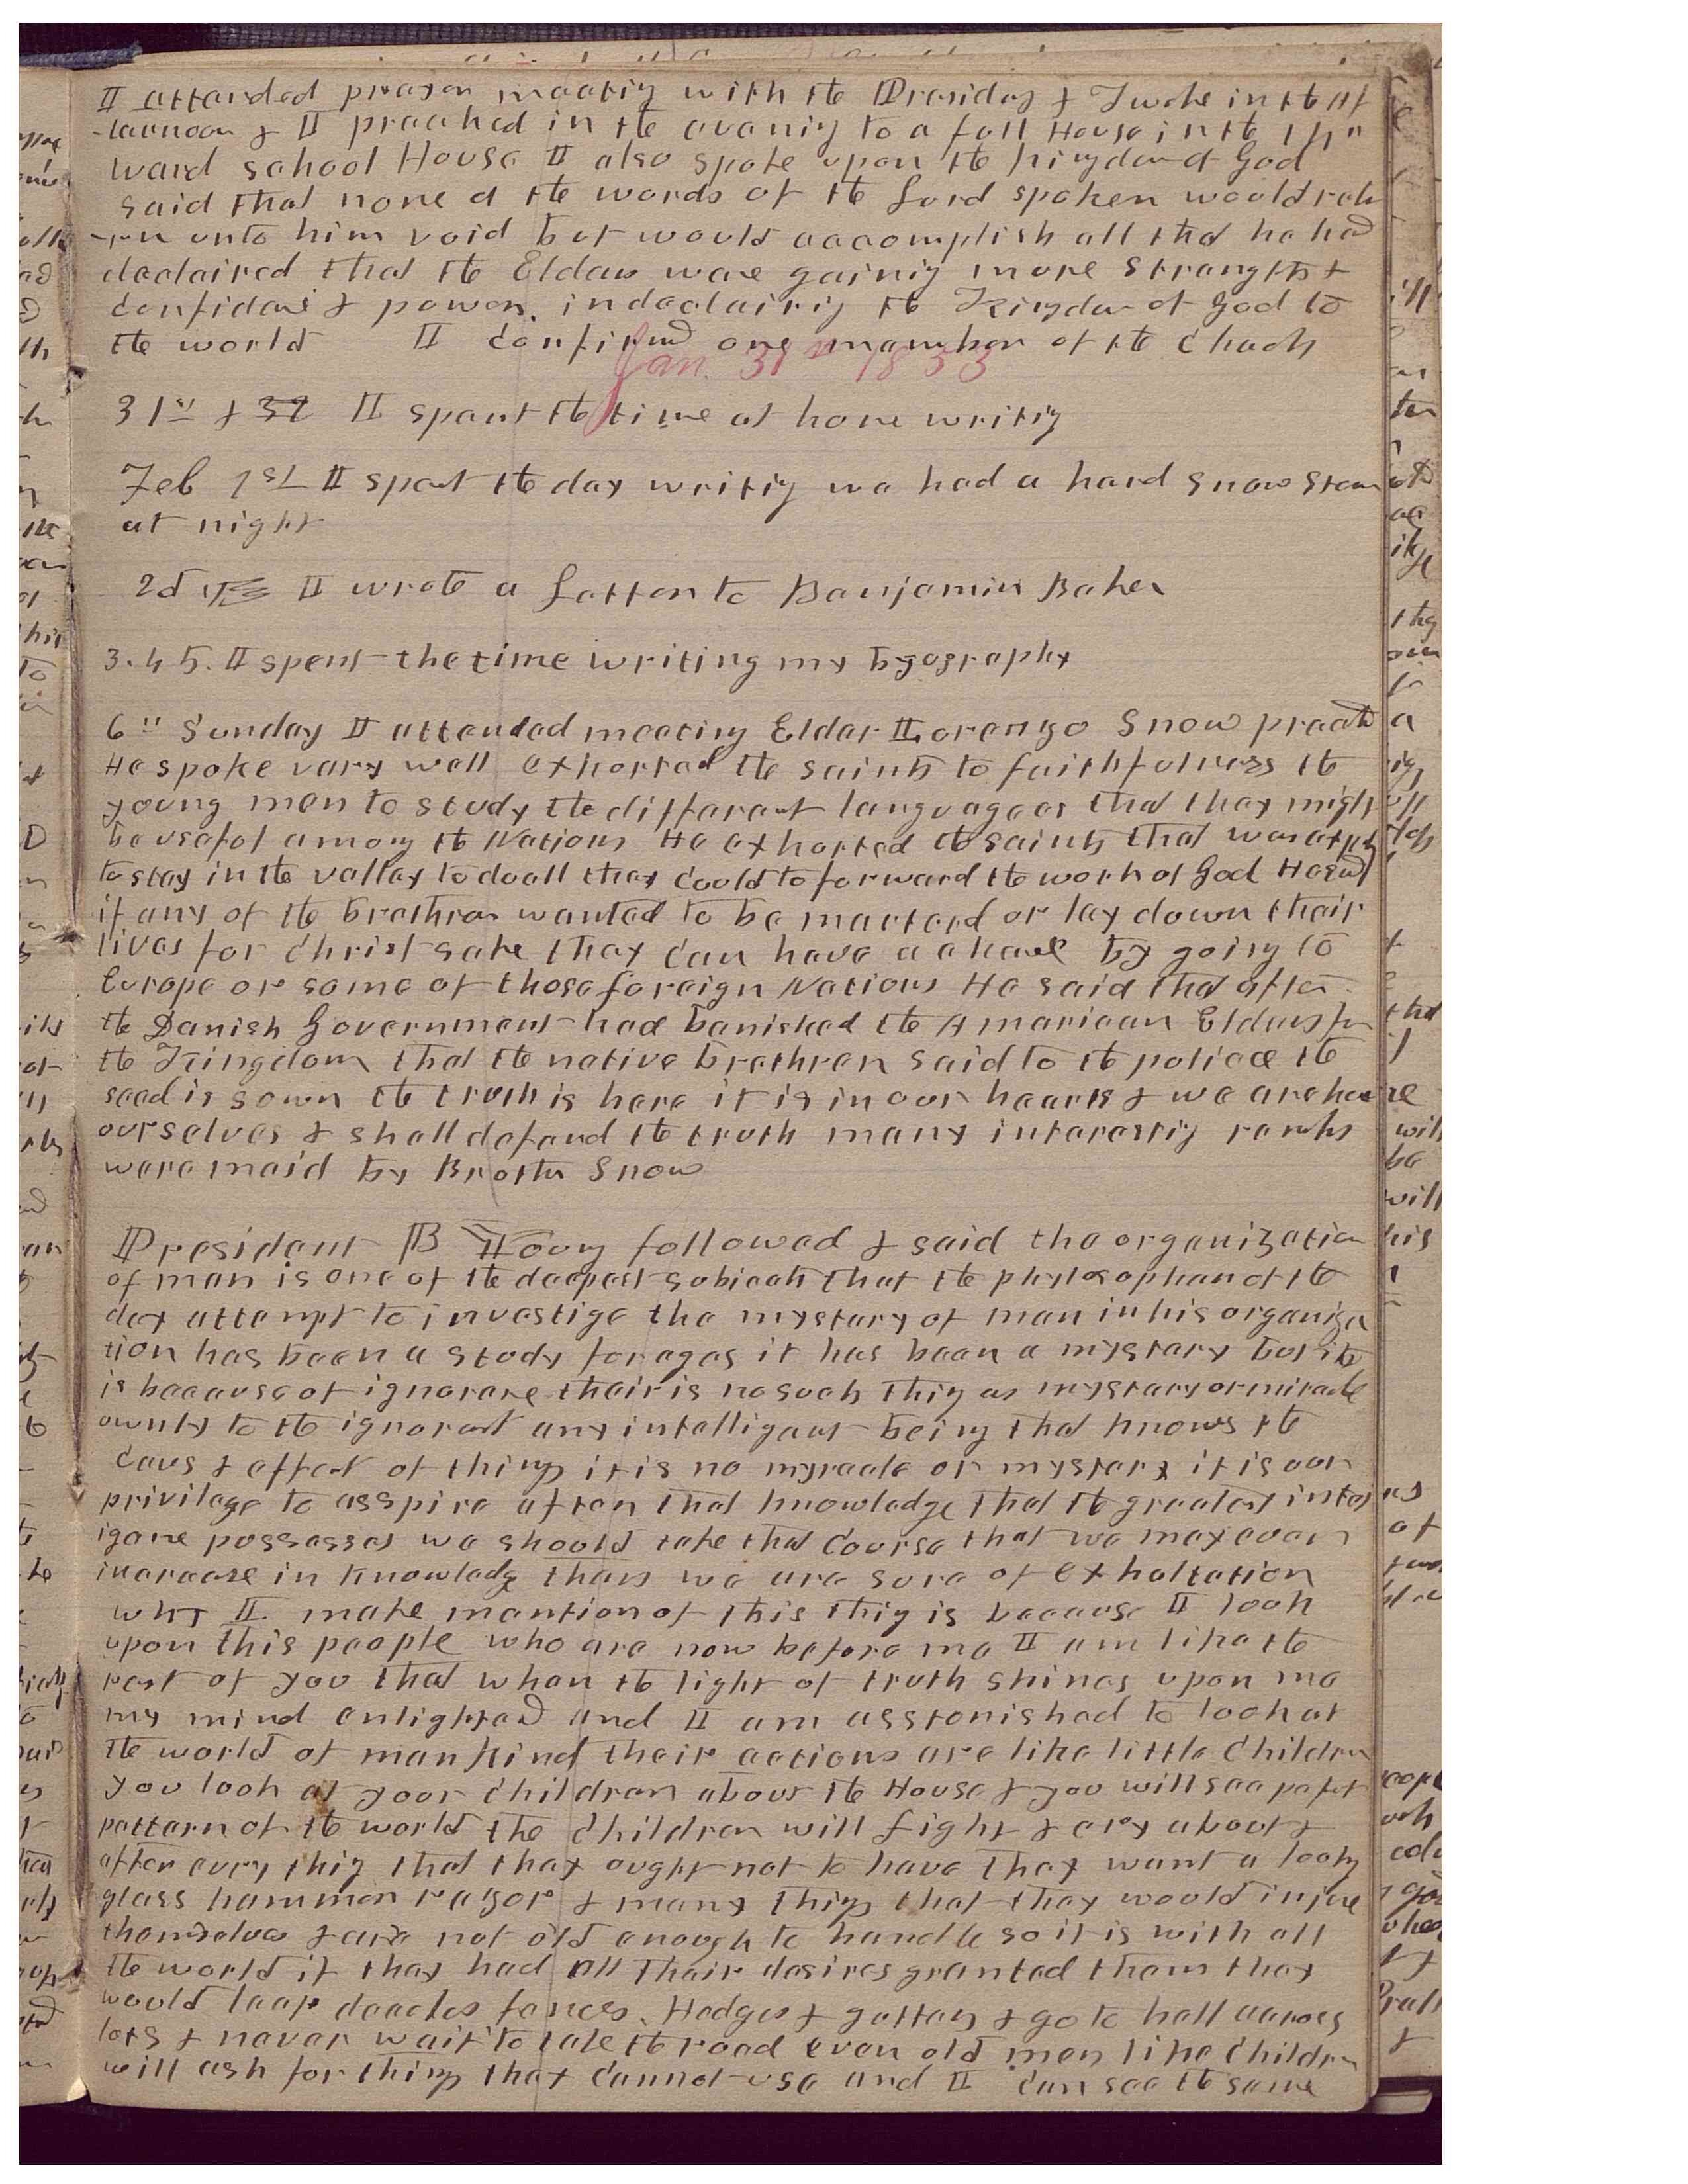 I attended prayer meeting with the Presidency & Twelve in the Af
-ternoon & I preached in the evening to a full House in the 17"
ward school House I also spoke upon the kingdom of God
said that none of the words of the Lord spoken would retu
-rn unto him void but would accomplish all that he had
declaired that the Elders ware gaining more strength &
confidence & power. in declairing the Kingdom of God to
the world I confirmed one member of the Church
Jan. 31st 1853
31st & 32 I spent the time at home writing
Feb 1st I spent the day writing we had a hard snow storm
at night
2d I wrote a Letter to Benjamin Baker
3. 4 5. I spent the time writing my byography
6" Sunday I attended meeting Elder Lorenzo Snow preach
He spoke vary well exhorted the saints to faithfulness the
young men to study the different languages that they migh
be useful among the Nations He exhorted the saints that was
to stay in the valley to do all they could to forward the work of God He said
if any of the brethren wanted to be marterd or lay down their
lives for Christ sake they can have a chance by going to
Europe or some of those foreign Nations He said that after
the Danish Government had banished the American Elders from
the Kingdom that the native brethren said to the police the
seed is sown the truth is here it is in our hearts & we are here
ourselves & shall defend the truth many interesting remarks
were maid by Brother Snow
President B Young followed & said the organization
of man is one of the deepest subjects that the phylosopher of the
day attempt to investige the mystery of man in his organiza
tion has been a study for ages it has been a mystery but it
is because of ignorance their is no such thing as mystery or miracle
ownly to the ignorant any intelligent being that knows the
caus & effect of things it is no myracle or mystery it is our
privilage to asspire after that knowledge that the greatest intel
igence possesses we should take that course that we may ever
increase in knowledge then we are sure of exhaltation
why I make mention of this thing is because I look
upon this people who are now before me I am like the
rest of you that when the light of truth shines upon me
my mind enlightend and I am asstonished to look at
the world of mankind their actions are like little children
you look at your children about the House & you will see a perfect
pattern of the world the children will fight & cry about &
after every thing that they ought not to have they want a looking
glass hammer razor & many things that they would injure
themselves & are not old enough to handle so it is with all
the world if they had all their desires granted them they
would leap fences. Hedges & gutters & go to hell across
lots & never wait to take the road even old men like children
will ask for things they cannot use and I can see the same